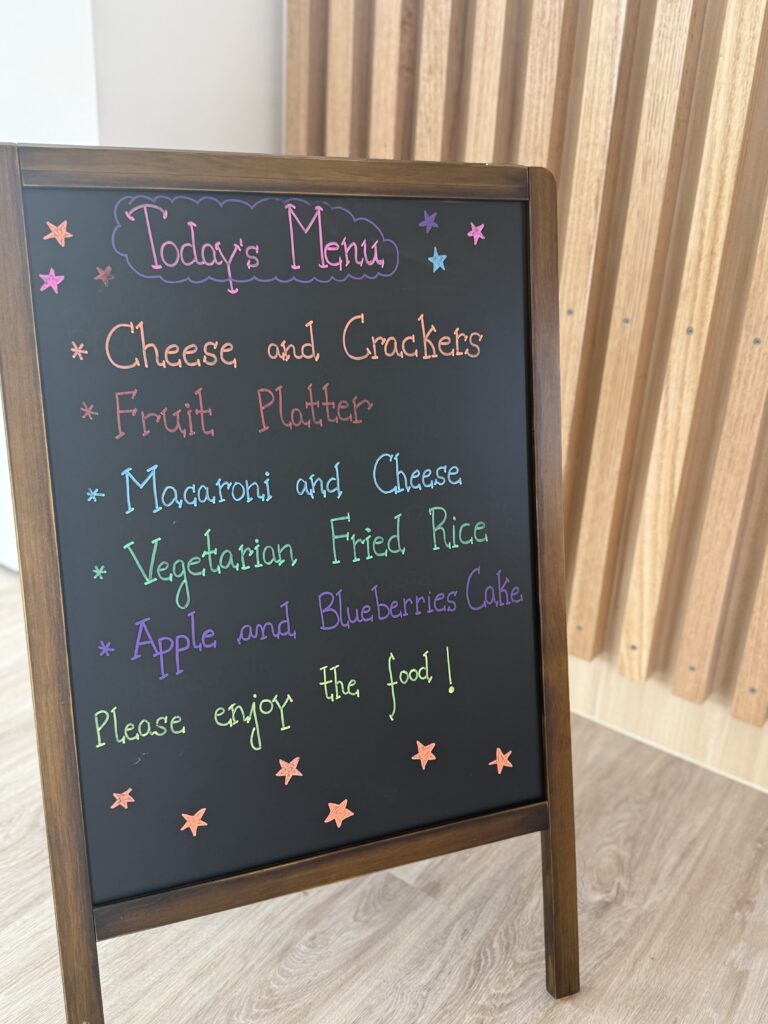 Today's Menu
* Cheese and Crackers
* Fruit Platter
* Macaroni and Cheese
* Vegetarian Fried Rice
* Apple and Blueberries Cake
Please enjoy the food!